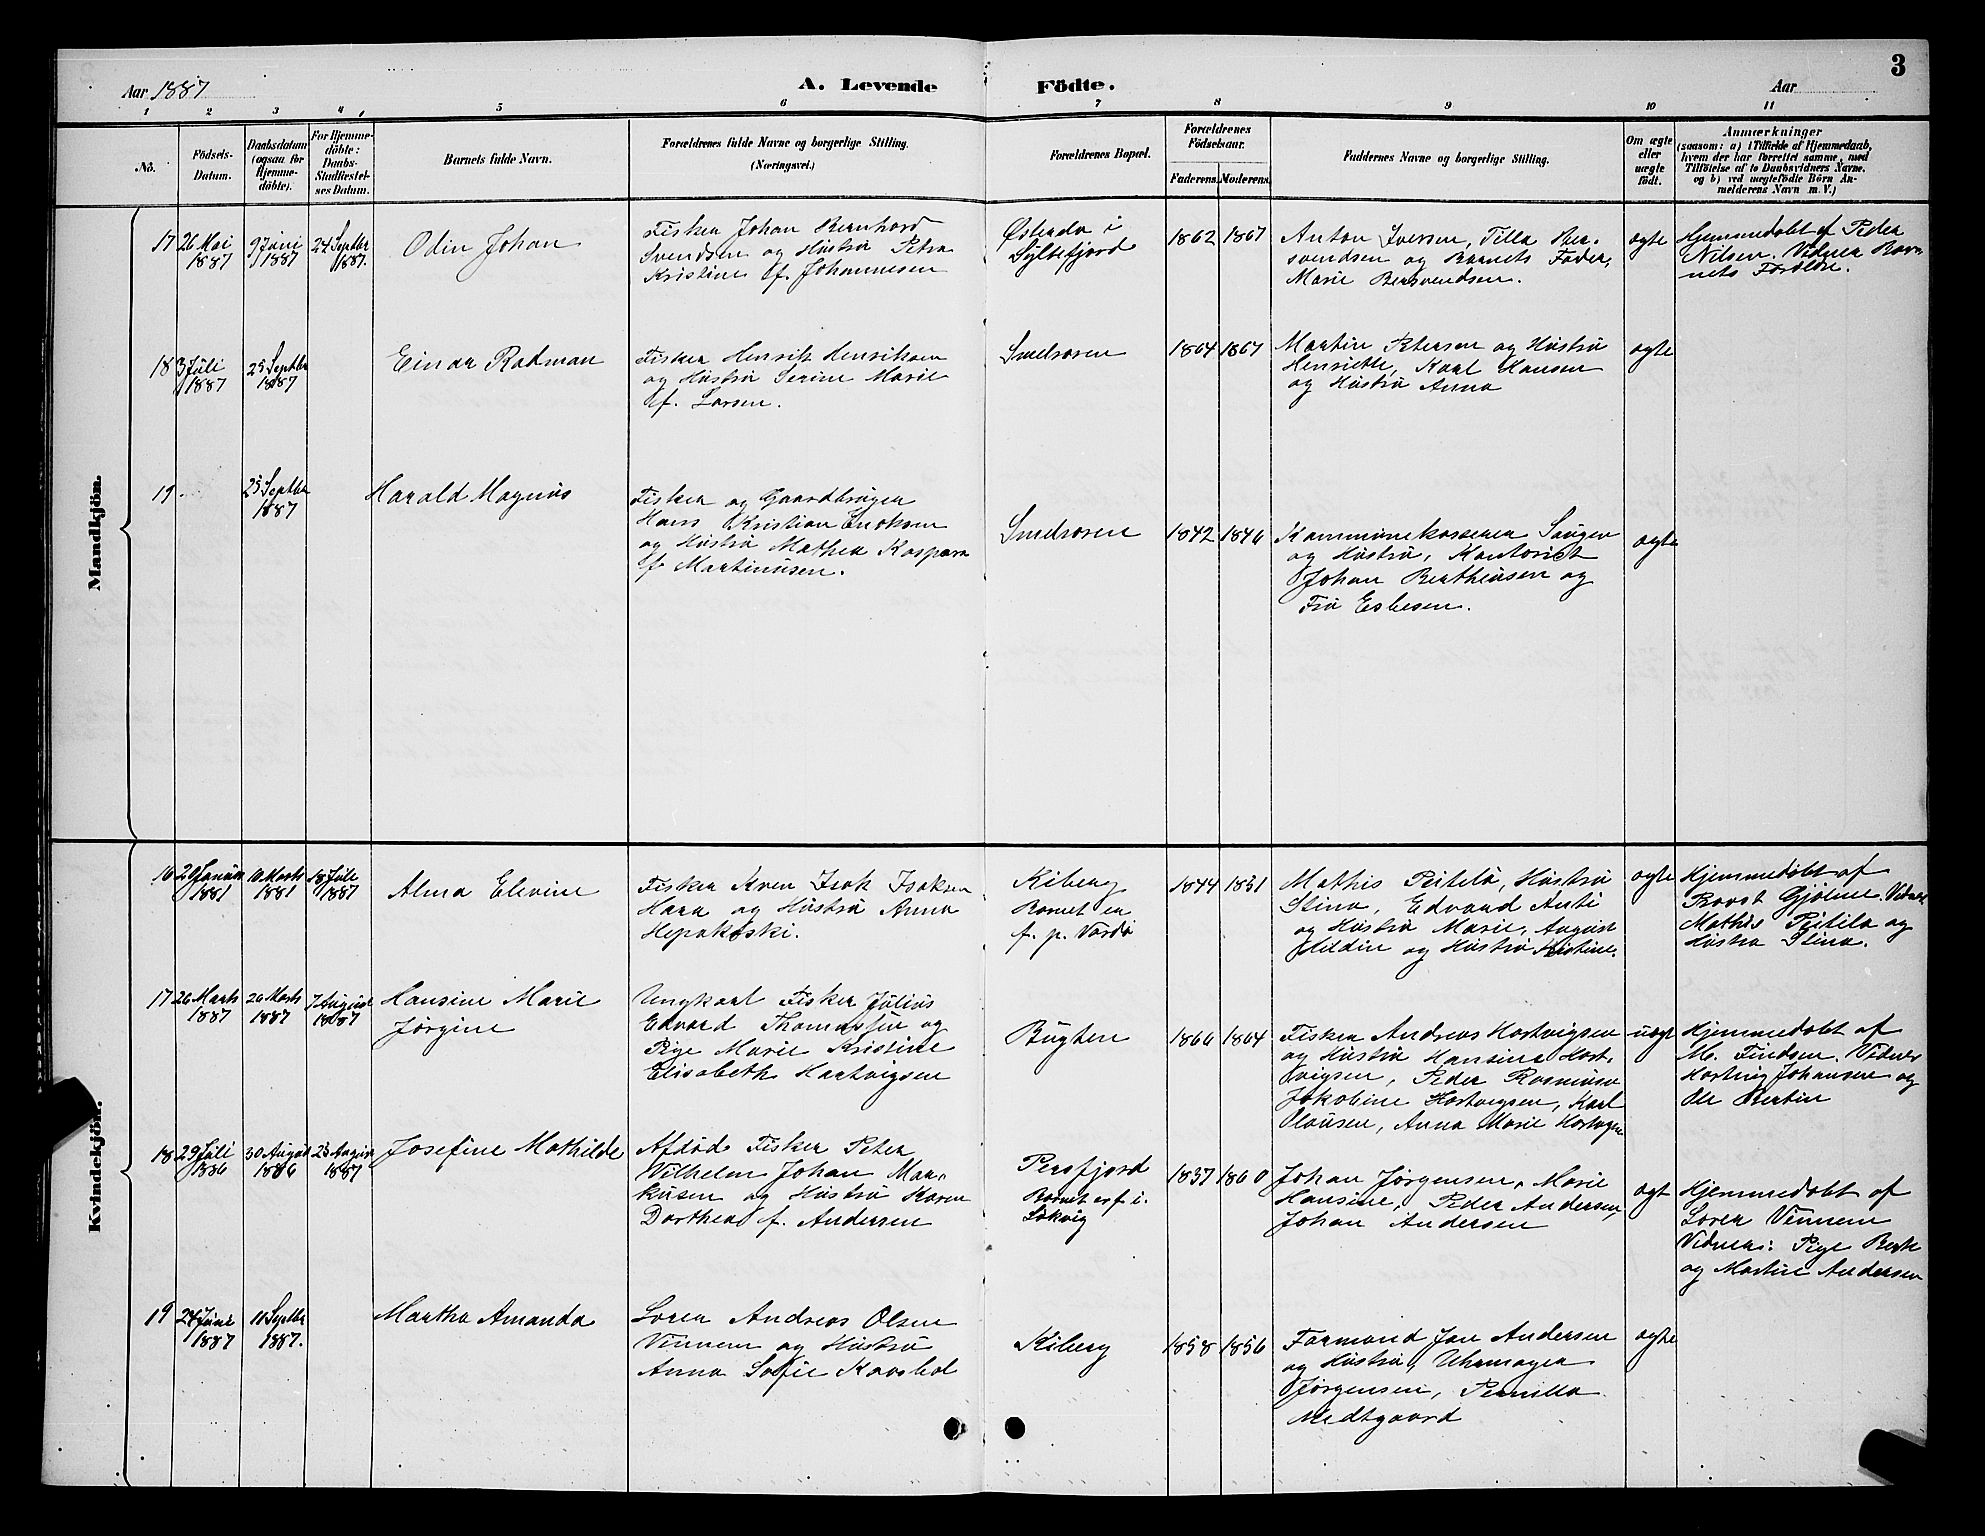 3
Aar 1887
A. Levende Födte.
Aar
1 2 3 4 5 6 7 8 9 10 11
No.
Födsels-
Datum.
Daabsdatum
(ogsaa for
Hjemme-
döbte).
For Hjemme-
döbte:
Daabs-
Stadfæstel-
ses Datum.
Barnets fulde Navn.
Forældrenes fulde Navne og borgerlige Stilling.
(Næringsvei.)
Forældrenes Bopæl.
Forældrenes
Födselsaar.
Faderens. Moderens.
Faddernes Navne og borgerlige Stilling.
Om ægte
eller
uægte
födt.
Anmærkninger
(saasom: a) i Tilfælde af Hjemmedaab,
hvem der har forrettet samme, med
Tilföielse af to Daabsvidners Navne,
og b) ved uægtefödte Börn An-
melderens Navn m. V.)
Mandkjön.
17
26 Mai
1887
9 Juni
1887
24 Septbr
1887.
Odin Johan
Fisker Johan Bernhard
Svendsen og Hustru Petra
Kristine f. Johannesen
Østerdø i
Syltefjord
1862
1867
Anton Iversen, Tilla Ber-
svendsen og Barnets Fader,
Marie Bersvendsen.
ægte
Hjemmedøbt af Peder
Nilsen. Vidner Bar-
nets Forældre.
18
3 Juli
1887
25 Septbr
1887
Einar Radman
Fisker Henrik Henriksen
og Hustru Serine Marie
f. Larsen.
Smelroren
1864
1867
Martin Petersen og Hustru
Henriette, Karl Hansen
og Hustru Anna
ægte
19
25 Septbr
1887
Harald Magnus
Fisker og Gaardbruger
Hans Kristian Eriksen
og Hustru Mathea Kaspara
f. Martinusen.
Smelroren
1842
1846
Kommunekasserer
og Hustru, Kontorist
Johan Bertheusen og
Fru Esbesen.
ægte
Kvindekjön.
16
20 Januar
1881
10 Marts
1881
18 Juli
1887
Alma Elevine
Fisker Kven Isak Isaksen
Hara og Hustru Anna
Hepokoski.
Kiberg
Barnet er
f. p. Vardø
1844
1851
Mathis Pietelä, Hustru
Stina, Edvard Anti
og Hustru Marie, August
Hildin og Hustru Kristine.
ægte
Hjemmedøbt af
Provst Gjølme. Vidner
Mathis Pietila og
Hustru Stina.
17
26 Marts
1887
26 Marts
1887
7 August
1887
Hansine Marie
Jørgine
Ungkarl Fisker Julius
Edvard Thomassen og
Pige Marie Kristine
Elisabeth Hartvigsen
Bugten
1866
1864
Fisker Andreas Hartvigsen
og Hustru Hansine Hart-
vigsen, Peder Rasmusen
Jakobine Hartvigsen, Karl
Olausen, Anna Marie Hartvigsen
uægt
Hjemmedøbt af
M. Findsen. Vidner
Hartvig Johansen og
Ole Bertin
18
29 Juli
1886
30 August
1886
25 August
1887
Josefine Mathilde
Afdøde Fisker Peter
Wilhelm Johan Mar-
kusen og Hustru Karen
Dorthea f. Andersen
Persfjord
Barnet er f. i.
Løkvig
1857
1860
Johan Jørgensen, Marie
Hansine, Peder Andersen,
Johan Andersen
ægt
Hjemmedøbt af
Soren Vinnem
Vidner: Pige Berte
og Martine Andersen
19
24 Juni
1887
11 Septbr
1887.
Martha Amanda
Soren Andreas Olsen
Vinnem og Hustru
Anna Sofie Kavsbøl
Kiberg
1858
1856
Formand Jan Andersen
og Hustru, Uhrmager
Jørgensen, Pernilla
Medtgaard
ægte